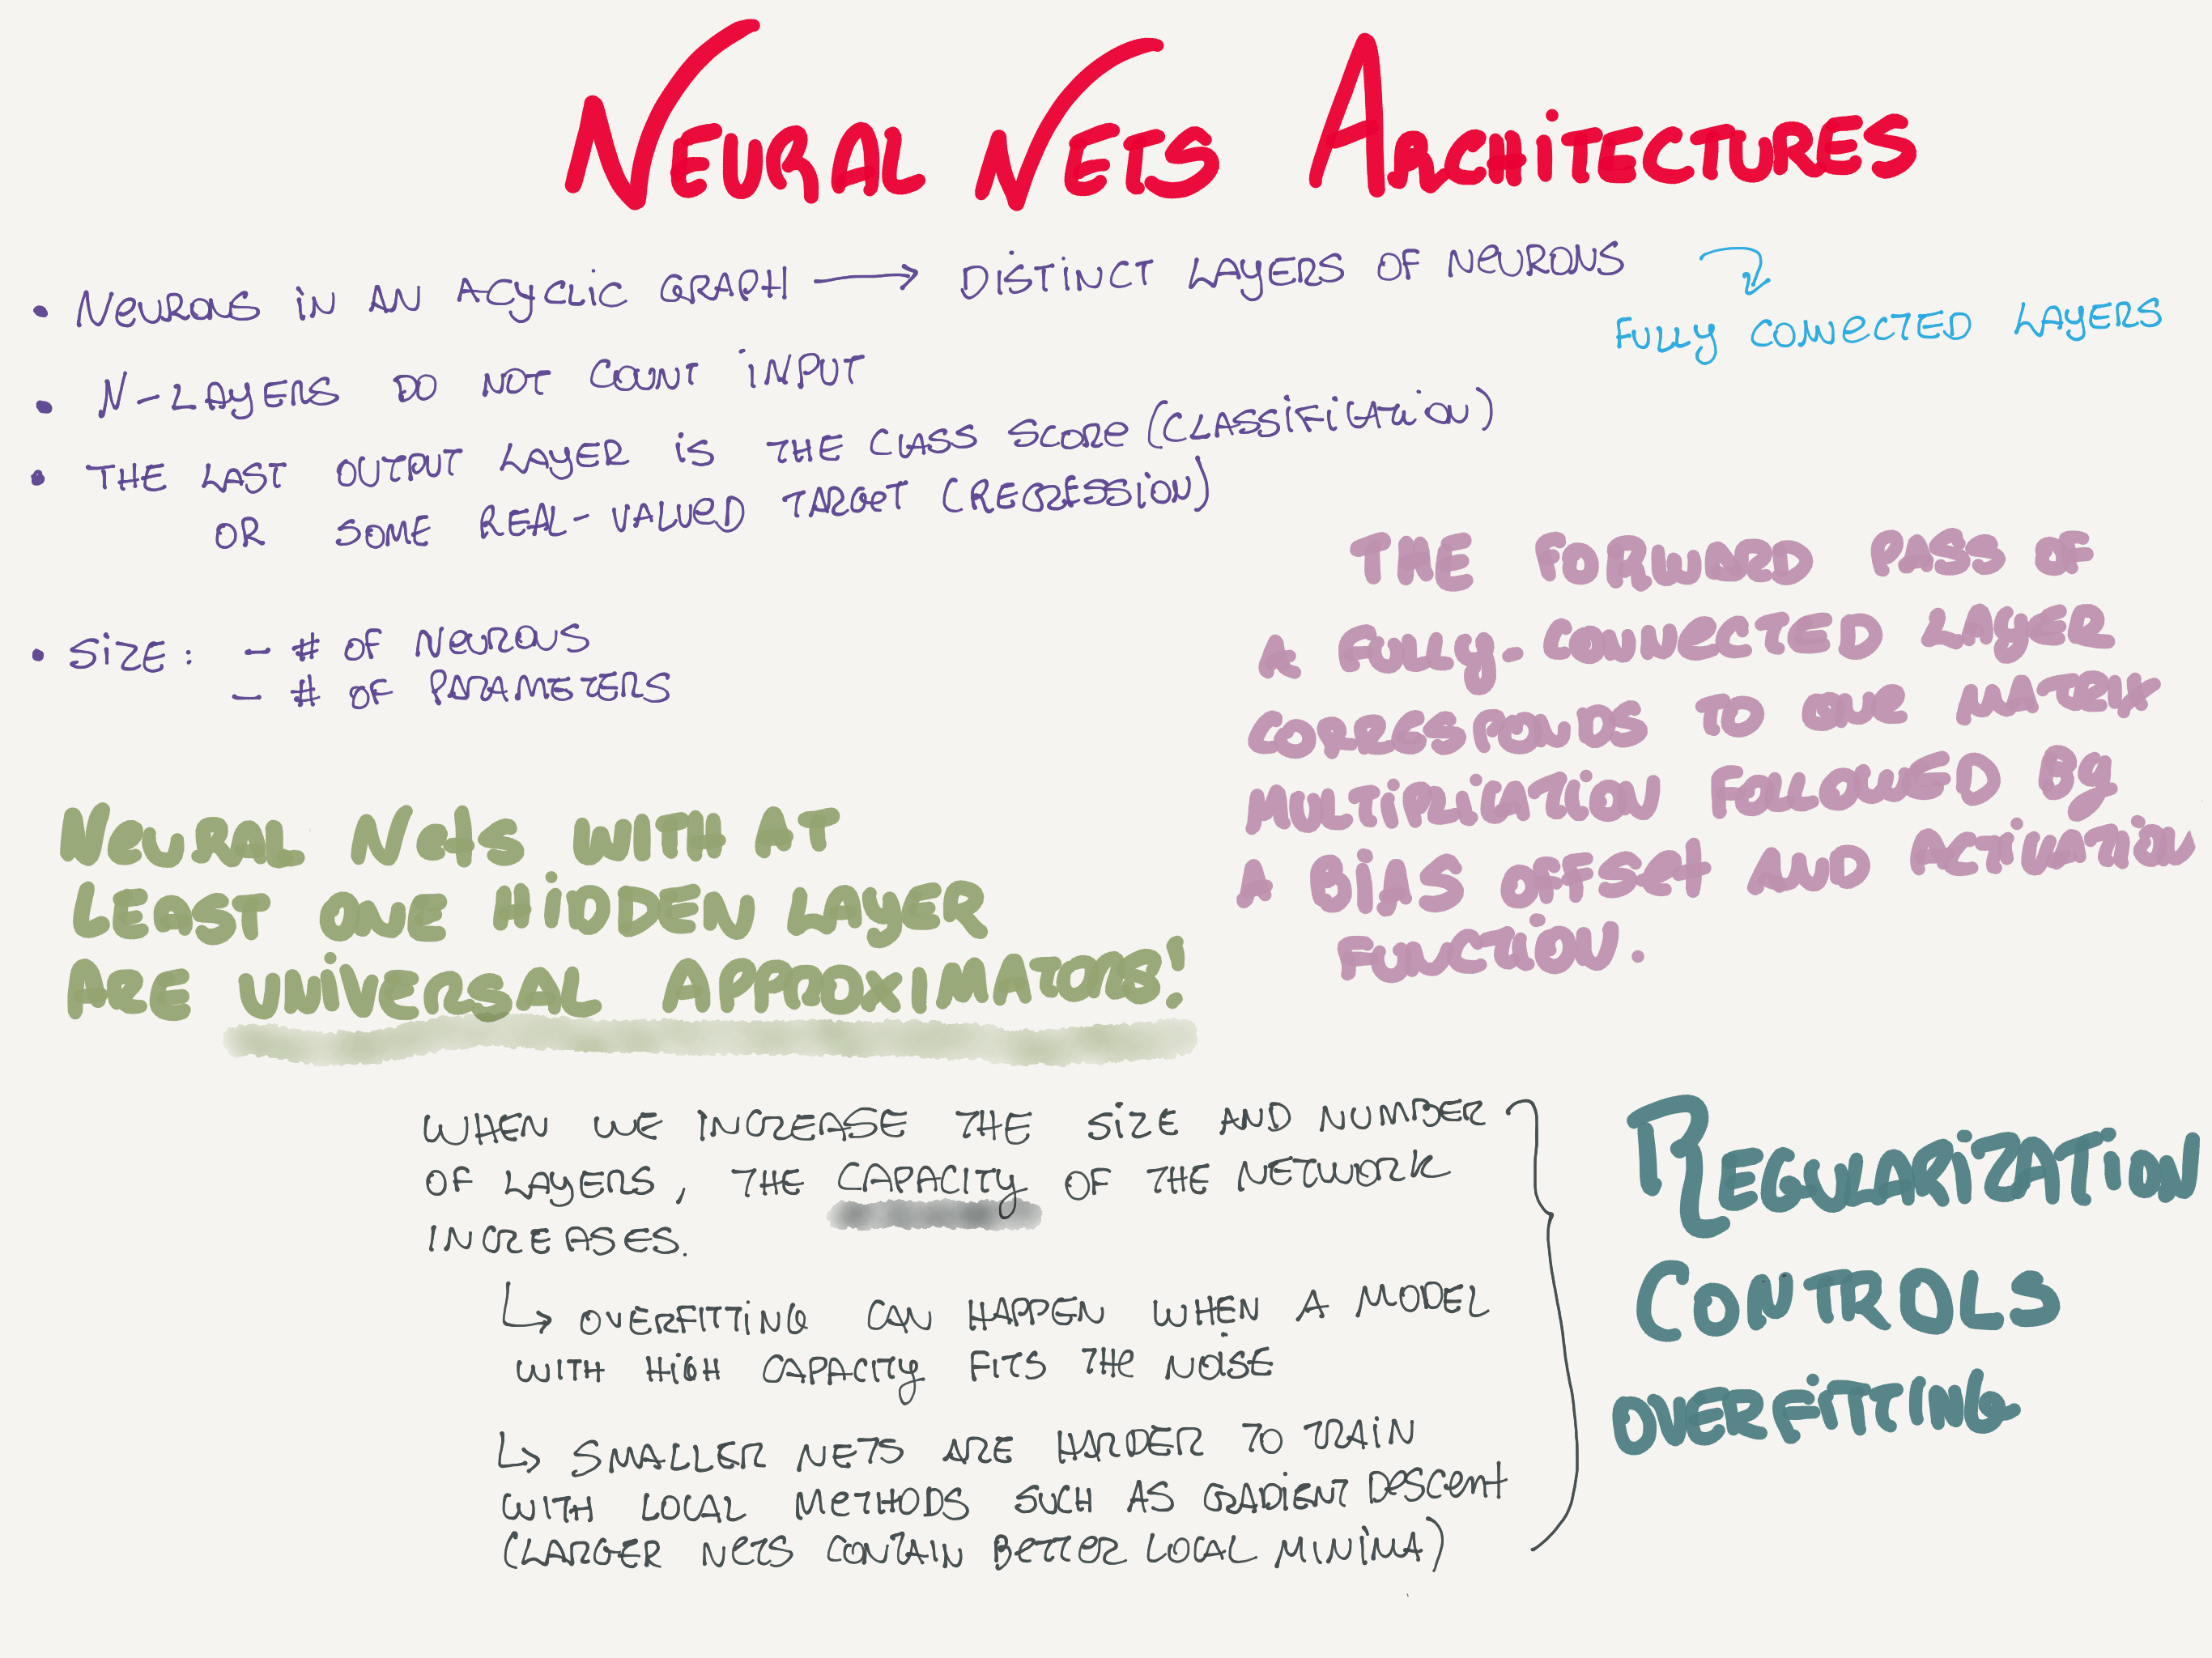 NEURAL NETS ARCHITECTURES
• NEURONS IN AN ACYCLIC GRAPH → DISTINCT LAYERS OF NEURONS
FULLY CONNECTED LAYERS
• N-LAYERS DO NOT COUNT INPUT
• THE LAST OUTPUT LAYER IS THE CLASS SCORE (CLASSIFICATION)
OR SOME REAL-VALUED TARGET (REGRESSION)
• SIZE: - # OF NEURONS
- # OF PARAMETERS
THE FORWARD PASS OF
A FULLY-CONNECTED LAYER
CORRESPONDS TO ONE MATRIX
MULTIPLICATION FOLLOWED BY
A BIAS OFFSET AND ACTIVATION
FUNCTION.
NEURAL NETS WITH AT
LEAST ONE HIDDEN LAYER
ARE UNIVERSAL APPROXIMATORS!
WHEN WE INCREASE THE SIZE AND NUMBER
OF LAYERS, THE CAPACITY OF THE NETWORK
INCREASES.
↳ OVERFITTING CAN HAPPEN WHEN A MODEL
WITH HIGH CAPACITY FITS THE NOISE
↳ SMALLER NETS ARE HARDER TO TRAIN
WITH LOCAL METHODS SUCH AS GRADIENT DESCENT
(LARGER NETS CONTAIN BETTER LOCAL MINIMA)
REGULARIZATION
CONTROLS
OVERFITTING